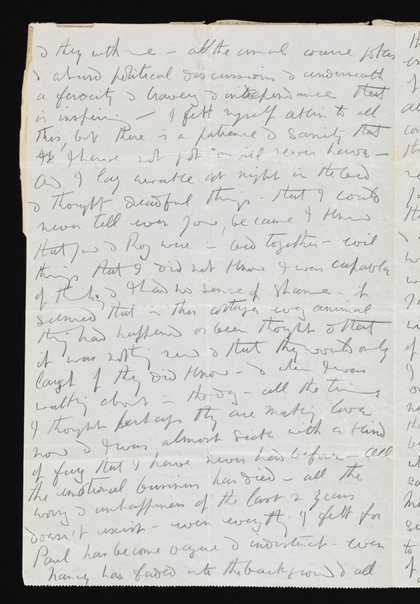 & they with me – all the usual coarse jokes
& absurd political discussions & underneath
a ferocity & bravery & independence that
is inspiring – I felt myself akin to all
this, but there is a patience & sanity that
I have not got & will never have –
And I lay awake at night in the bed
& thought dreadful things – that I could
never tell even you, because I knew
that you & Roy were in bed together – evil
things that I did not know I was capable
of & I had no sense of shame – it
seemed that in this cottage every animal
thing had happened or been thought & that
it was nothing new & that they would only
laugh if they did know – & when I was
walking about – the day – all the time
I thought perhaps they are making love
now & I was almost sick with a kind
of fury that I have never had before – All
the emotional business has died – all the
worry & unhappiness of the last 2 years
doesn't exist – even everything I felt for
Paul has become vague & indistinct – even
has faded into the background & all